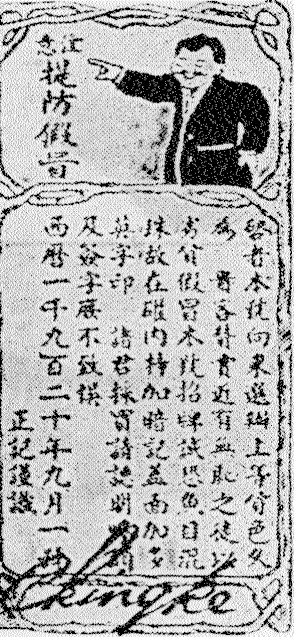 注意
提防假冒
啓者本號向來選辦上等貨色久
為 客稱賞近有無恥之徒以
劣貨假冒本號招牌誠恐魚目混
珠故在磁內特加暗記蓋面加多
英字印 諸君採買請認明
及簽字庶不致悞
西曆一千九百二十年九月一號
正記謹識
Chingke